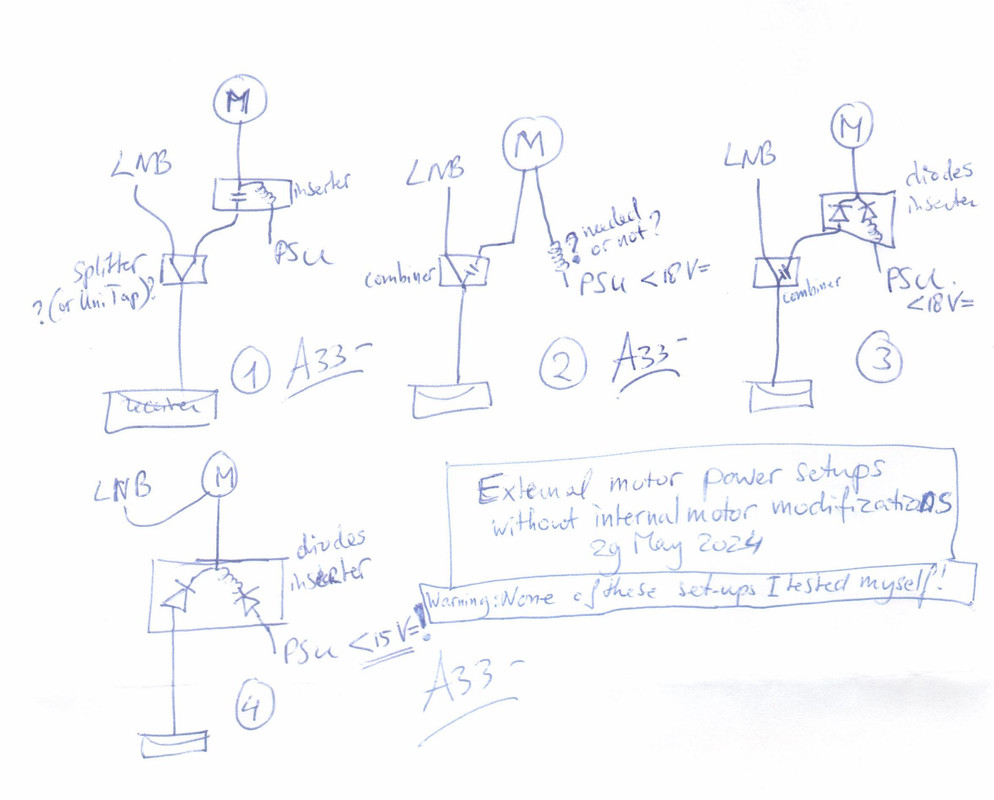 M
LNB
inserter
PSU
Splitter
? (or UniTap)?
1
A33-
receiver
M
LNB
? needed
or not?
combiner
PSU <18V=
2
A33-
M
LNB
diodes
inserter
combiner
PSU.
<18V=
3
M
LNB
diodes
inserter
PSU <15V=!
4
A33-
External motor power setups
without internal motor modifizations
29 May 2024
Warning: None of these set-ups I tested myself!